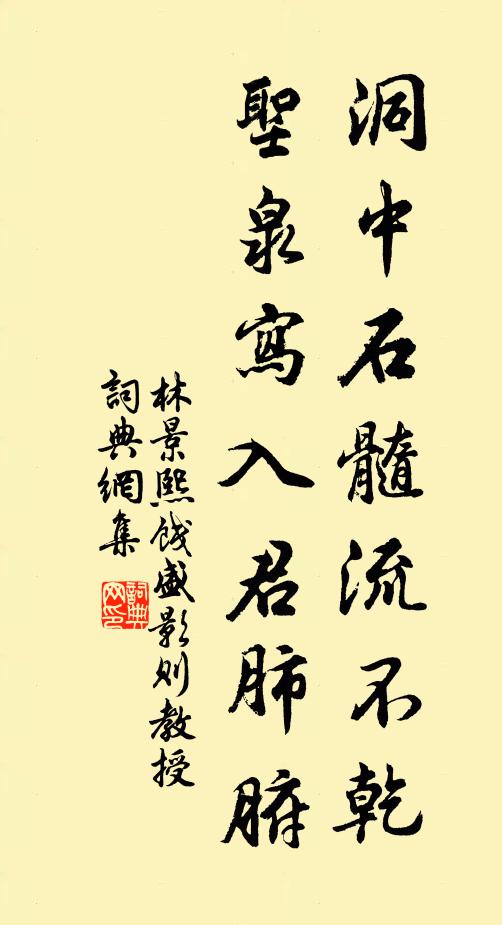 洞中石髓流不乾
聖泉寫入君肺腑
林景熙餞盛影則教授
詞典網集
詞典
网印